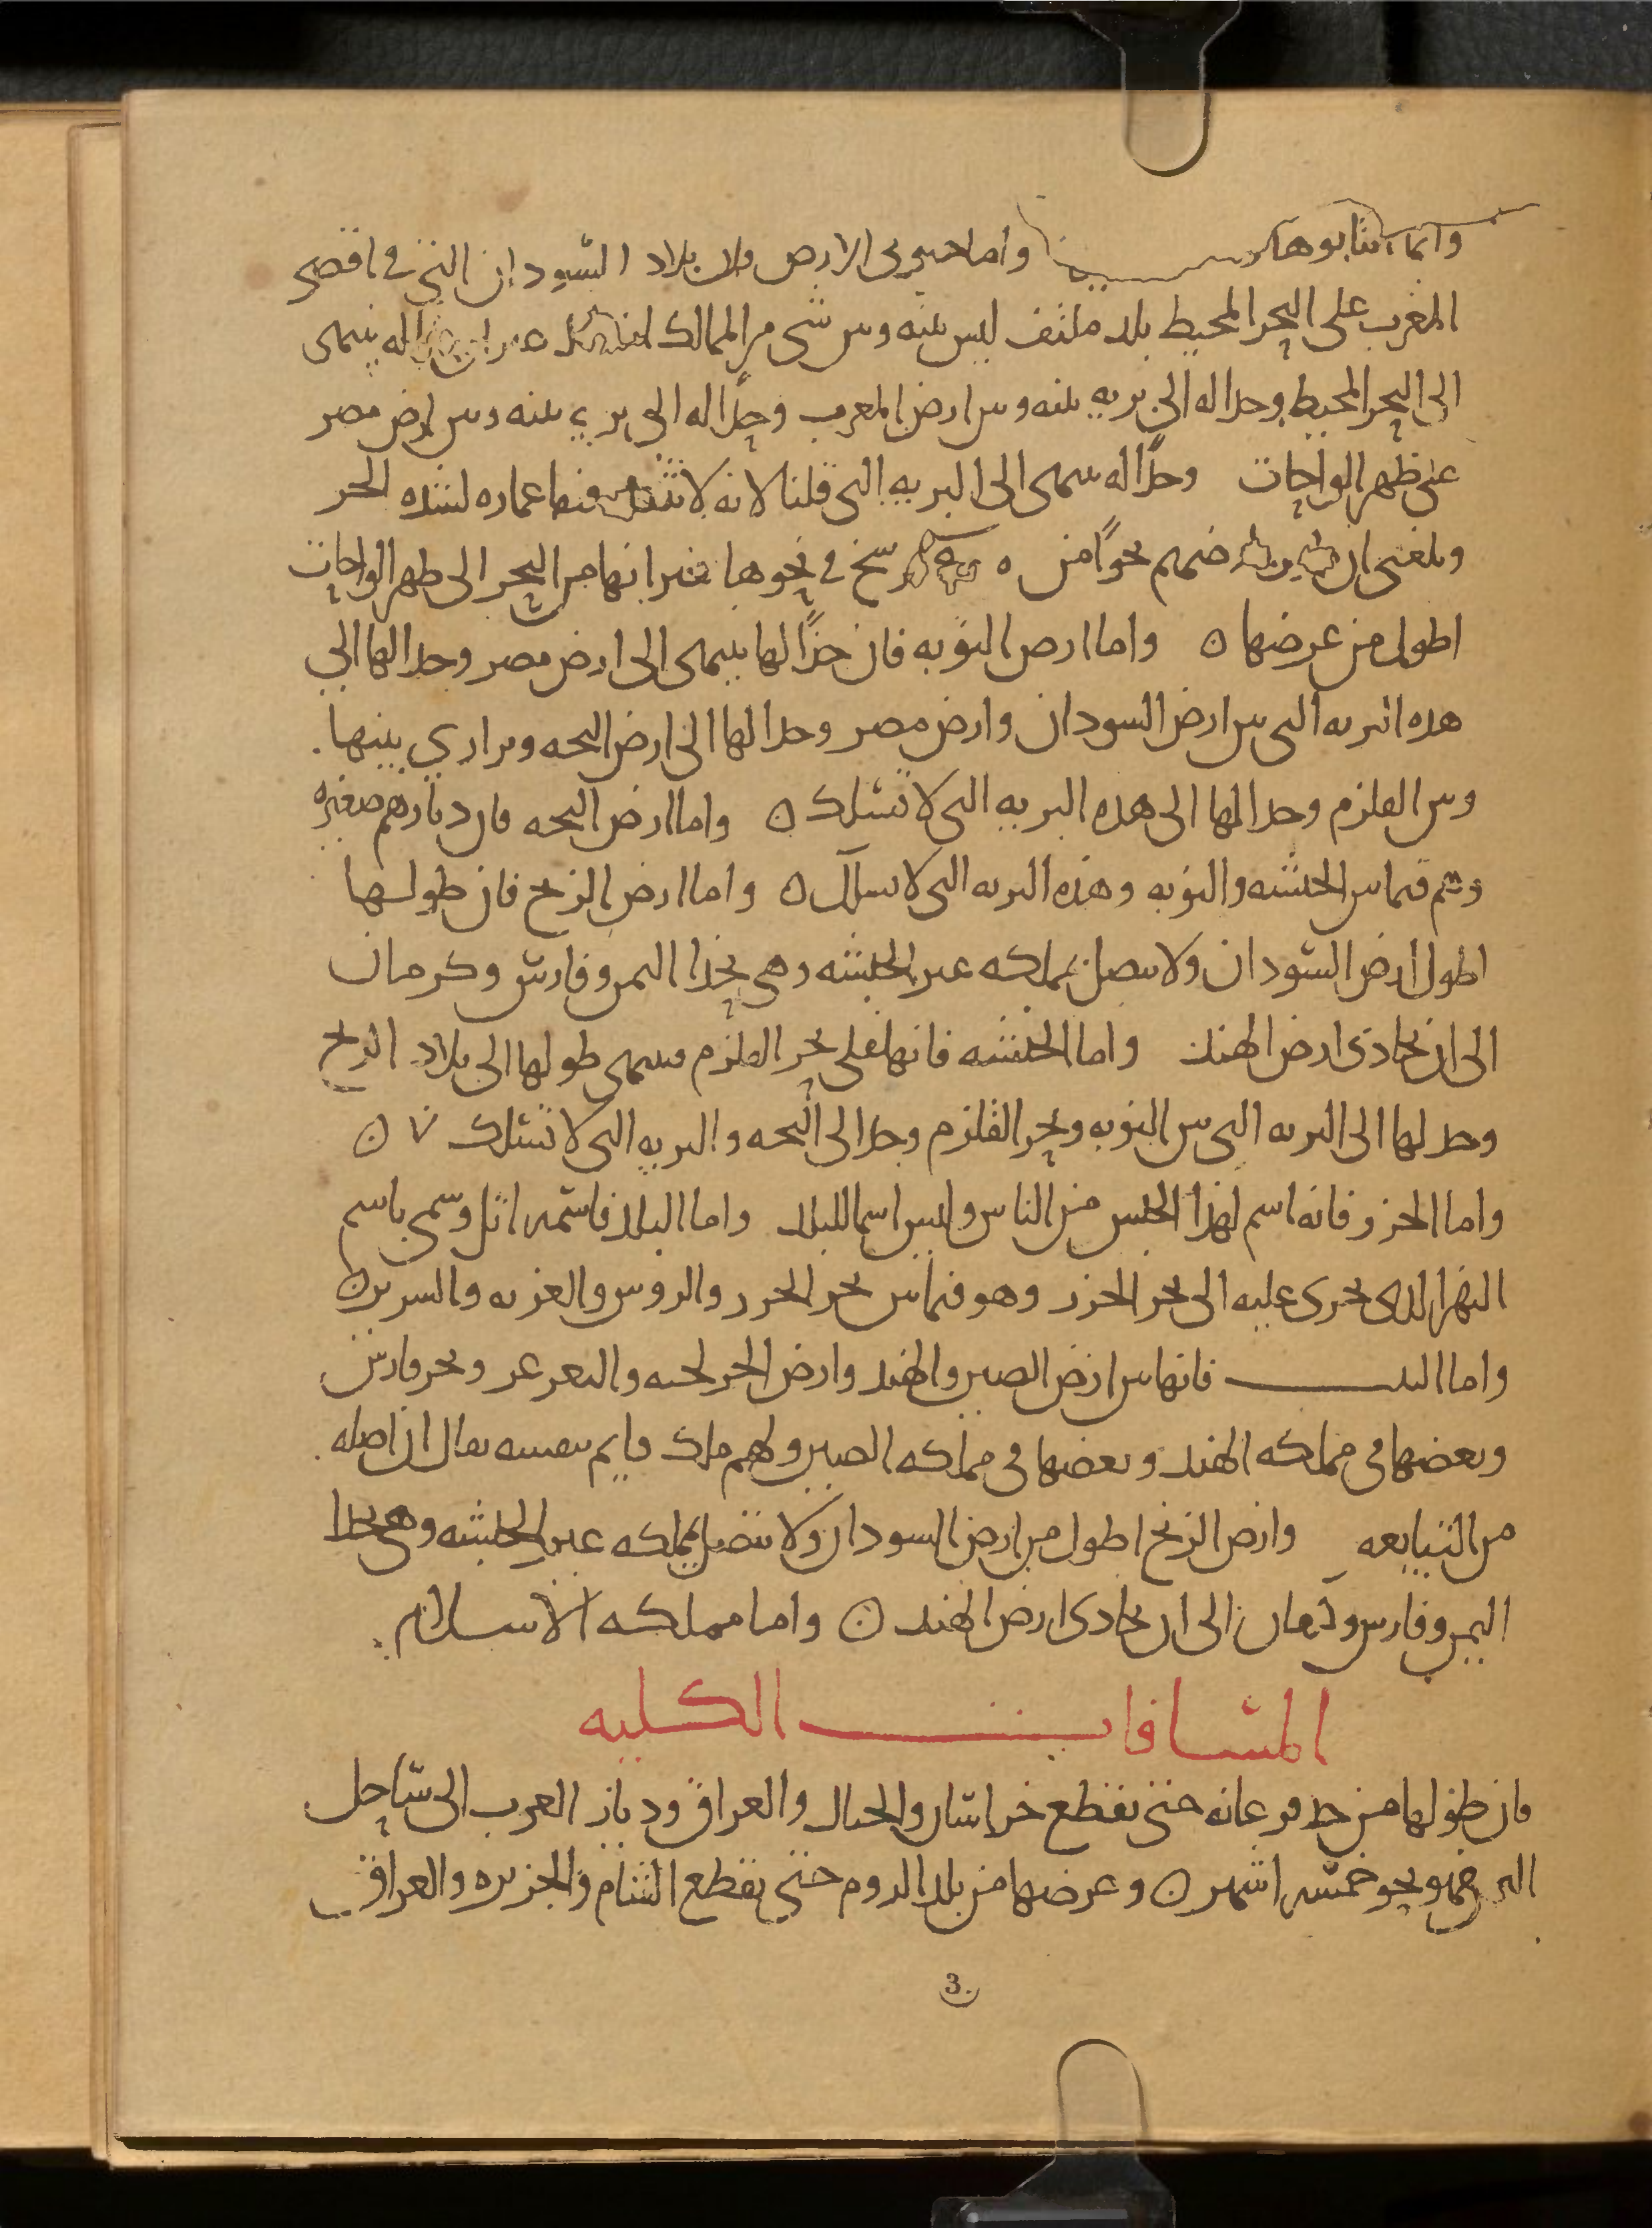 وانما انتابوها واما جنوبى الارض فان بلاد السودان التى فى اقصى
المغرب على البحر المحيط بلد ملتف ليس بينه وبين شى من الممالك غير ان له ينتهى
الى البحر المحيط وحدا له الى بريه بينه وبين ارض المغرب وحدًا له الى بريه بينه وبين ارض مصر
على ظهر الواحات وحدًا له ينتهى الى البريه التى قلنا لانه لا تثبت فيها عماره لشده الحر
وبلغنى ان ارضهم نحوًا من فرسخ فى نحوها غير انها من البحر الى ظهر الواحات
اطول من عرضها ه واما ارض النوبه فان حدًا لها ينتهى الى ارض مصر وحدا لها الى
هده البريه التى بين ارض السودان وارض مصر وحدا لها الى ارض البجه وبرارى بينها
وبين القلزم وحدا لها الى هده البريه التى لا تسلك ه واما ارض البجه فان ديارهم صغيره
وهم فيما بين الحبشه والنوبه وهذه البريه التى لا تسلك ه واما ارض الزنج فان طولها
اطول ارض السودان ولا تتصل بمملكه غير الحبشه وهى بحدا اليمن وفارس وكرمان
الى ان تحادى ارض الهند واما الحبشه فانها على بحر القلزم وينتهى طولها الى بلاد الزنج
وحد لها الى البريه التى بين النوبه وبحر القلزم وحدا الى البجه والبريه التى لا تسلك ه
واما الخزر فانه اسم لهذا الجنس من الناس وليس اسما للبلد واما البلد فاسمه اتل وسمى باسم
النهر الدى يجرى عليه الى بحر الخزر وهو فيما بين بحر الخزر والروس والغزيه والسرير ه
واما التبت فانها بين ارض الصين والهند وارض الخرلخيه والتغرغر وبحر فارس
وبعضها فى مملكه الهند وبعضها فى مملكه الصين ولهم ملك قايم بنفسه يقال ان اصله
من التبابعه وارض الزنج اطول من ارض السودان ولا تتصل بمملكه غير الحبشه وهى بحدا
اليمن وفارس وكرمان الى ان تحادى ارض الهند ه واما مملكه الاسلام
المسافات الكليه
فان طولها من حد فرغانه حتى تقطع خراسان والجبال والعراق وديار العرب الى ساحل
اليمن فهو نحو خمسه اشهر ه وعرضها من بلد الروم حتى تقطع الشام والجزيره والعراق
3.